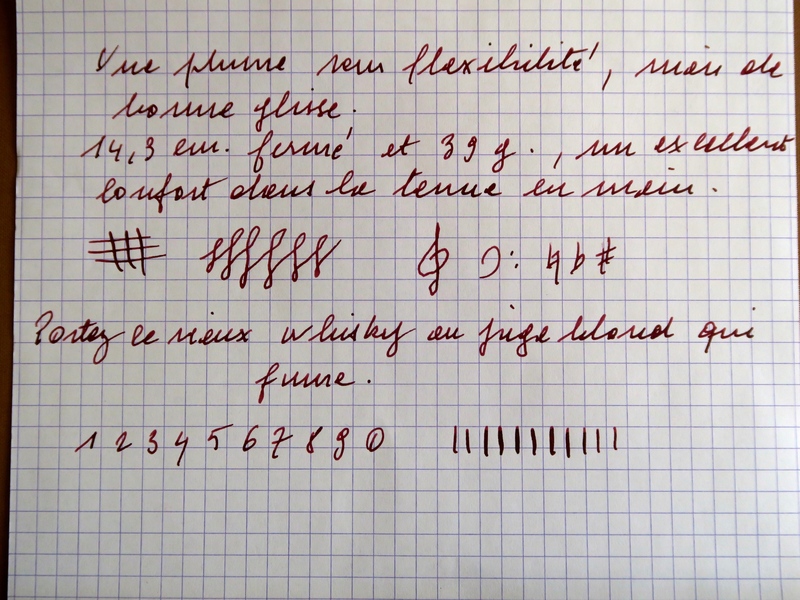 Une plume sans flexibilité, mais de
bonne glisse.
14,3 cm. fermé et 39 g., un excellent
confort dans la tenue en main.
Portez ce vieux whisky au juge blond qui
fume.
1 2 3 4 5 6 7 8 9 0